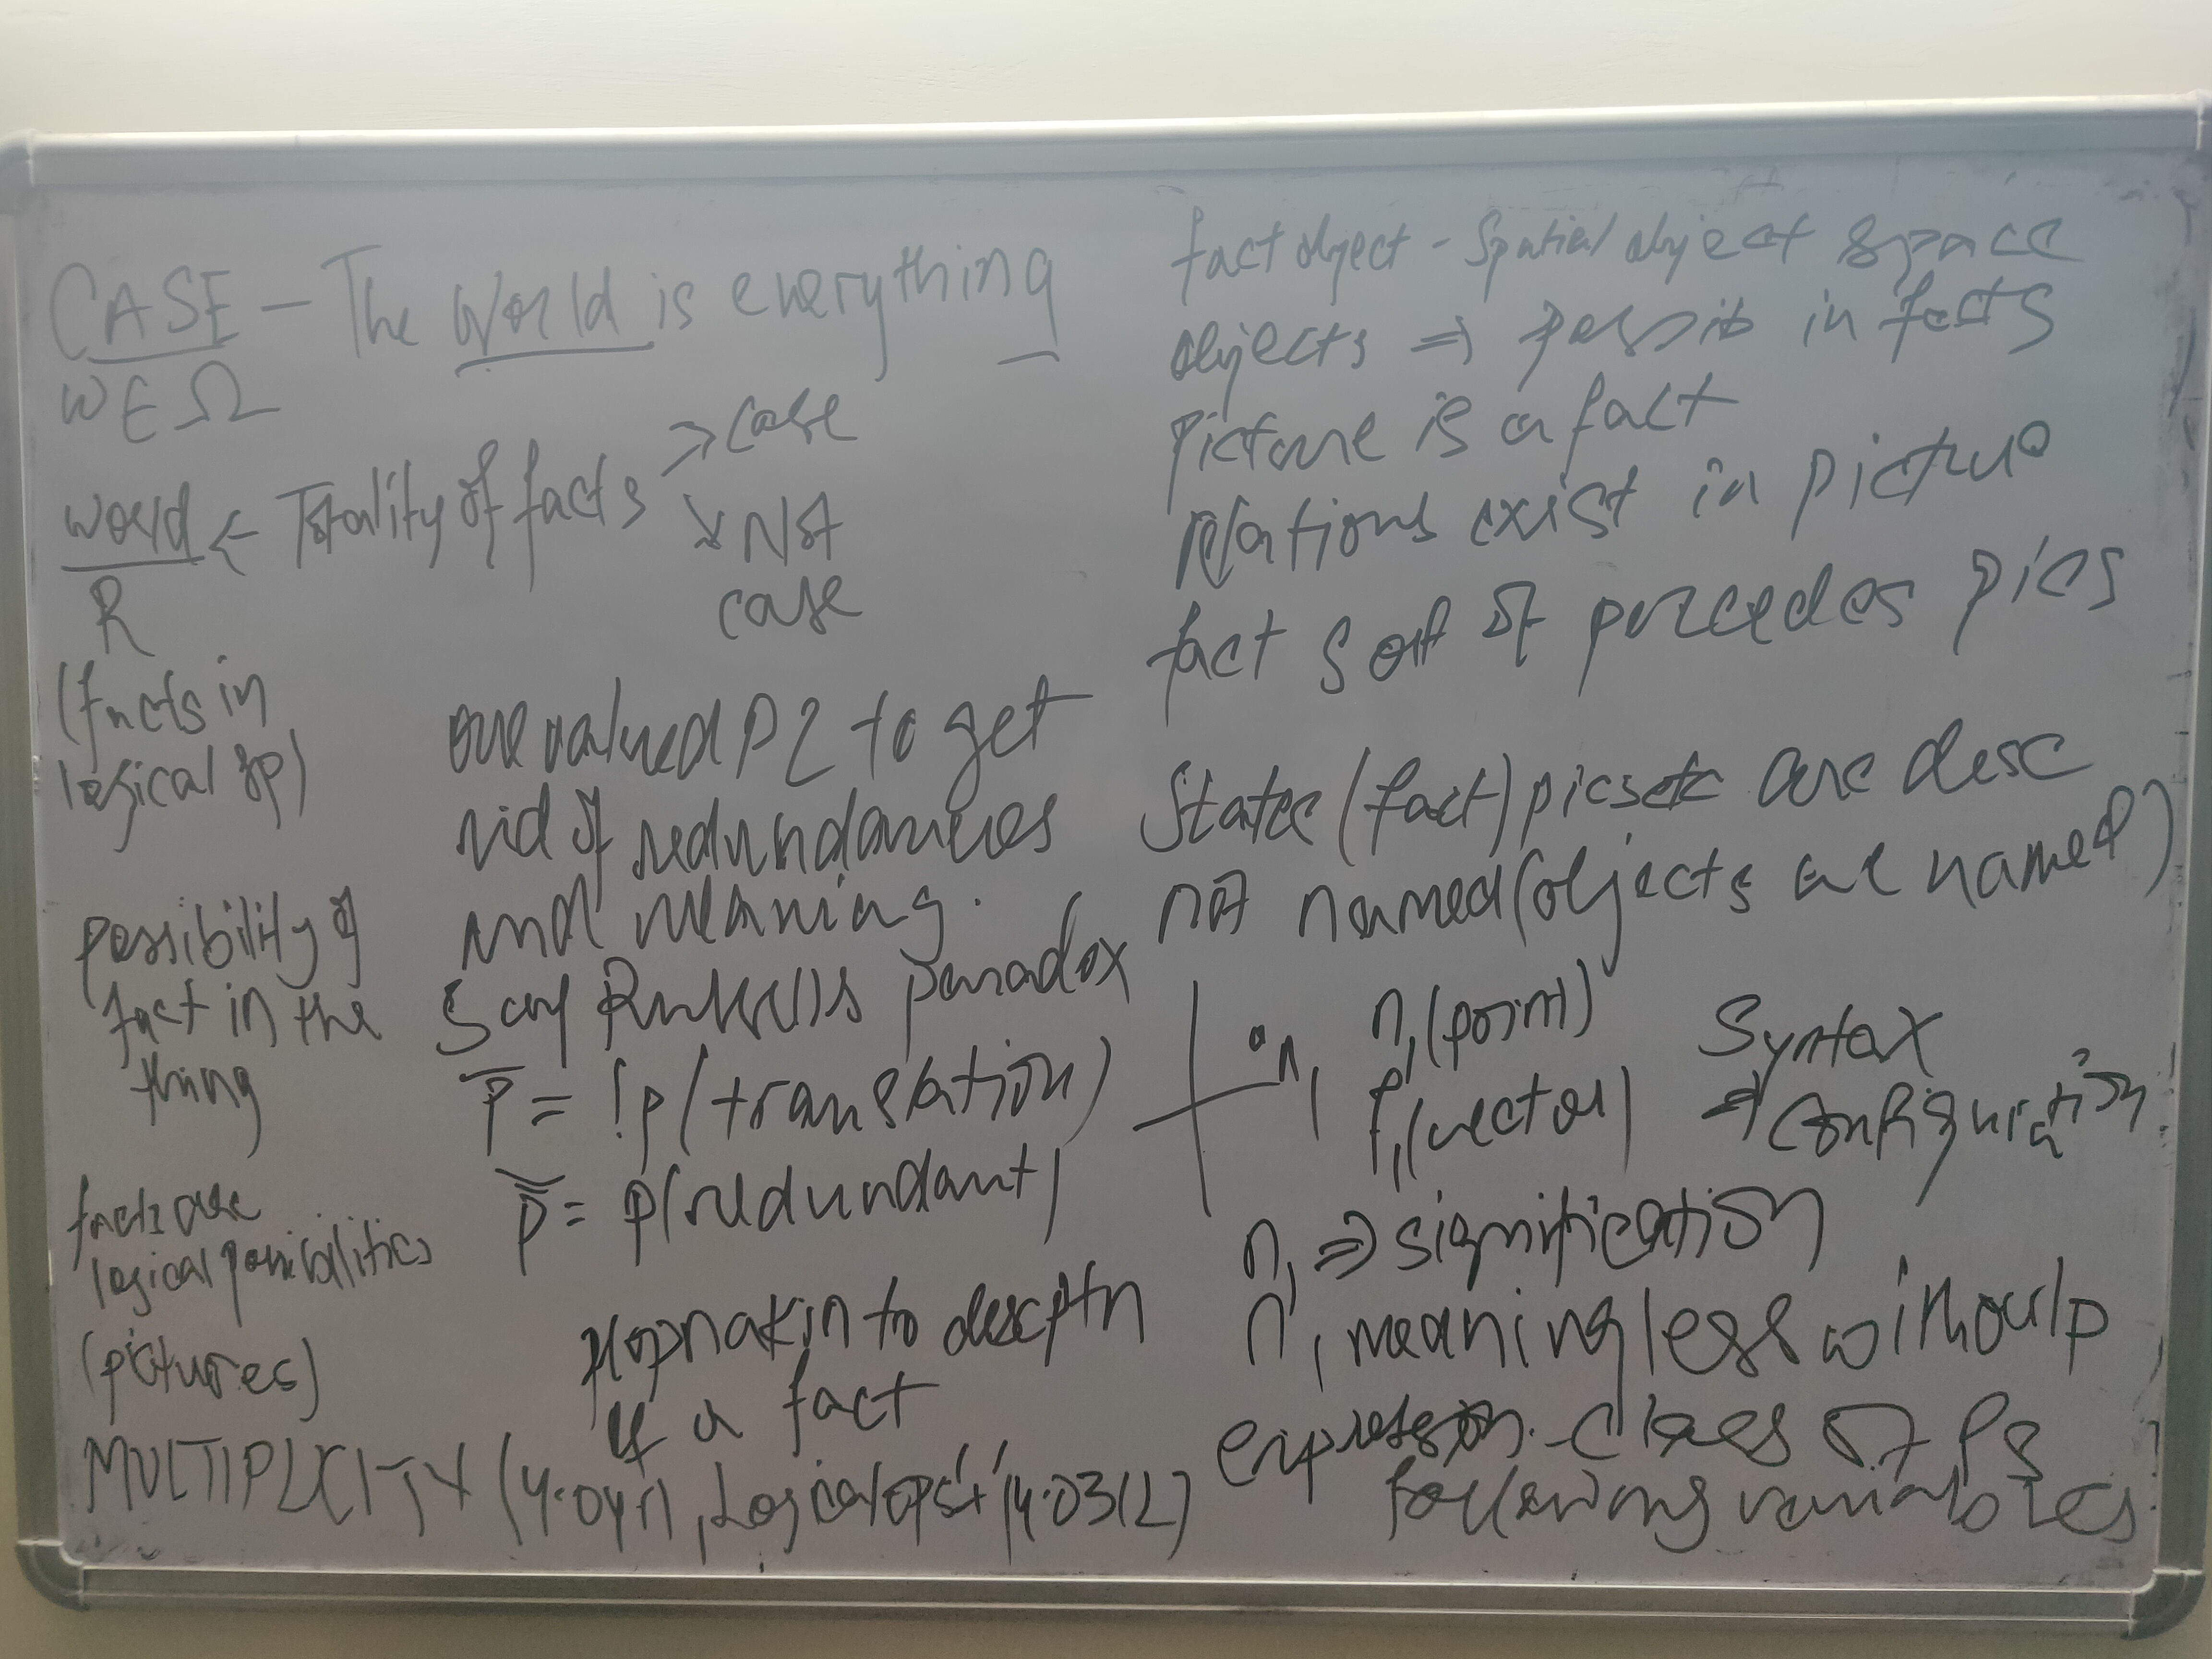 CASE - The World is everything
W ∈ Ω
World ← Totality of facts → case
↘ Not
case
R
(facts in
logical sp)
possibility of
fact in the
thing
facts are
logical possibilities
(pictures)
MULTIPLICITY (4.041), Logical ops (4.0312)
overvalued PL to get
rid of redundancies
and meaning.
Say Russell's paradox
p̅ = !p (translation)
p̿ = p (redundant)
propn akin to descptn
of a fact
fact object - Spatial object space
objects ⇒ possib in facts
picture is a fact
relations exist in picture
fact sort of precedes pics
State (fact) pics etc are desc
not named (objects are named)
n₁
n₁ (point)
p₁ (vector)
Syntax
⇒ configuration
n₁ ⇒ signification
n₁ meaningless without p
expression - class of Ps
following variables